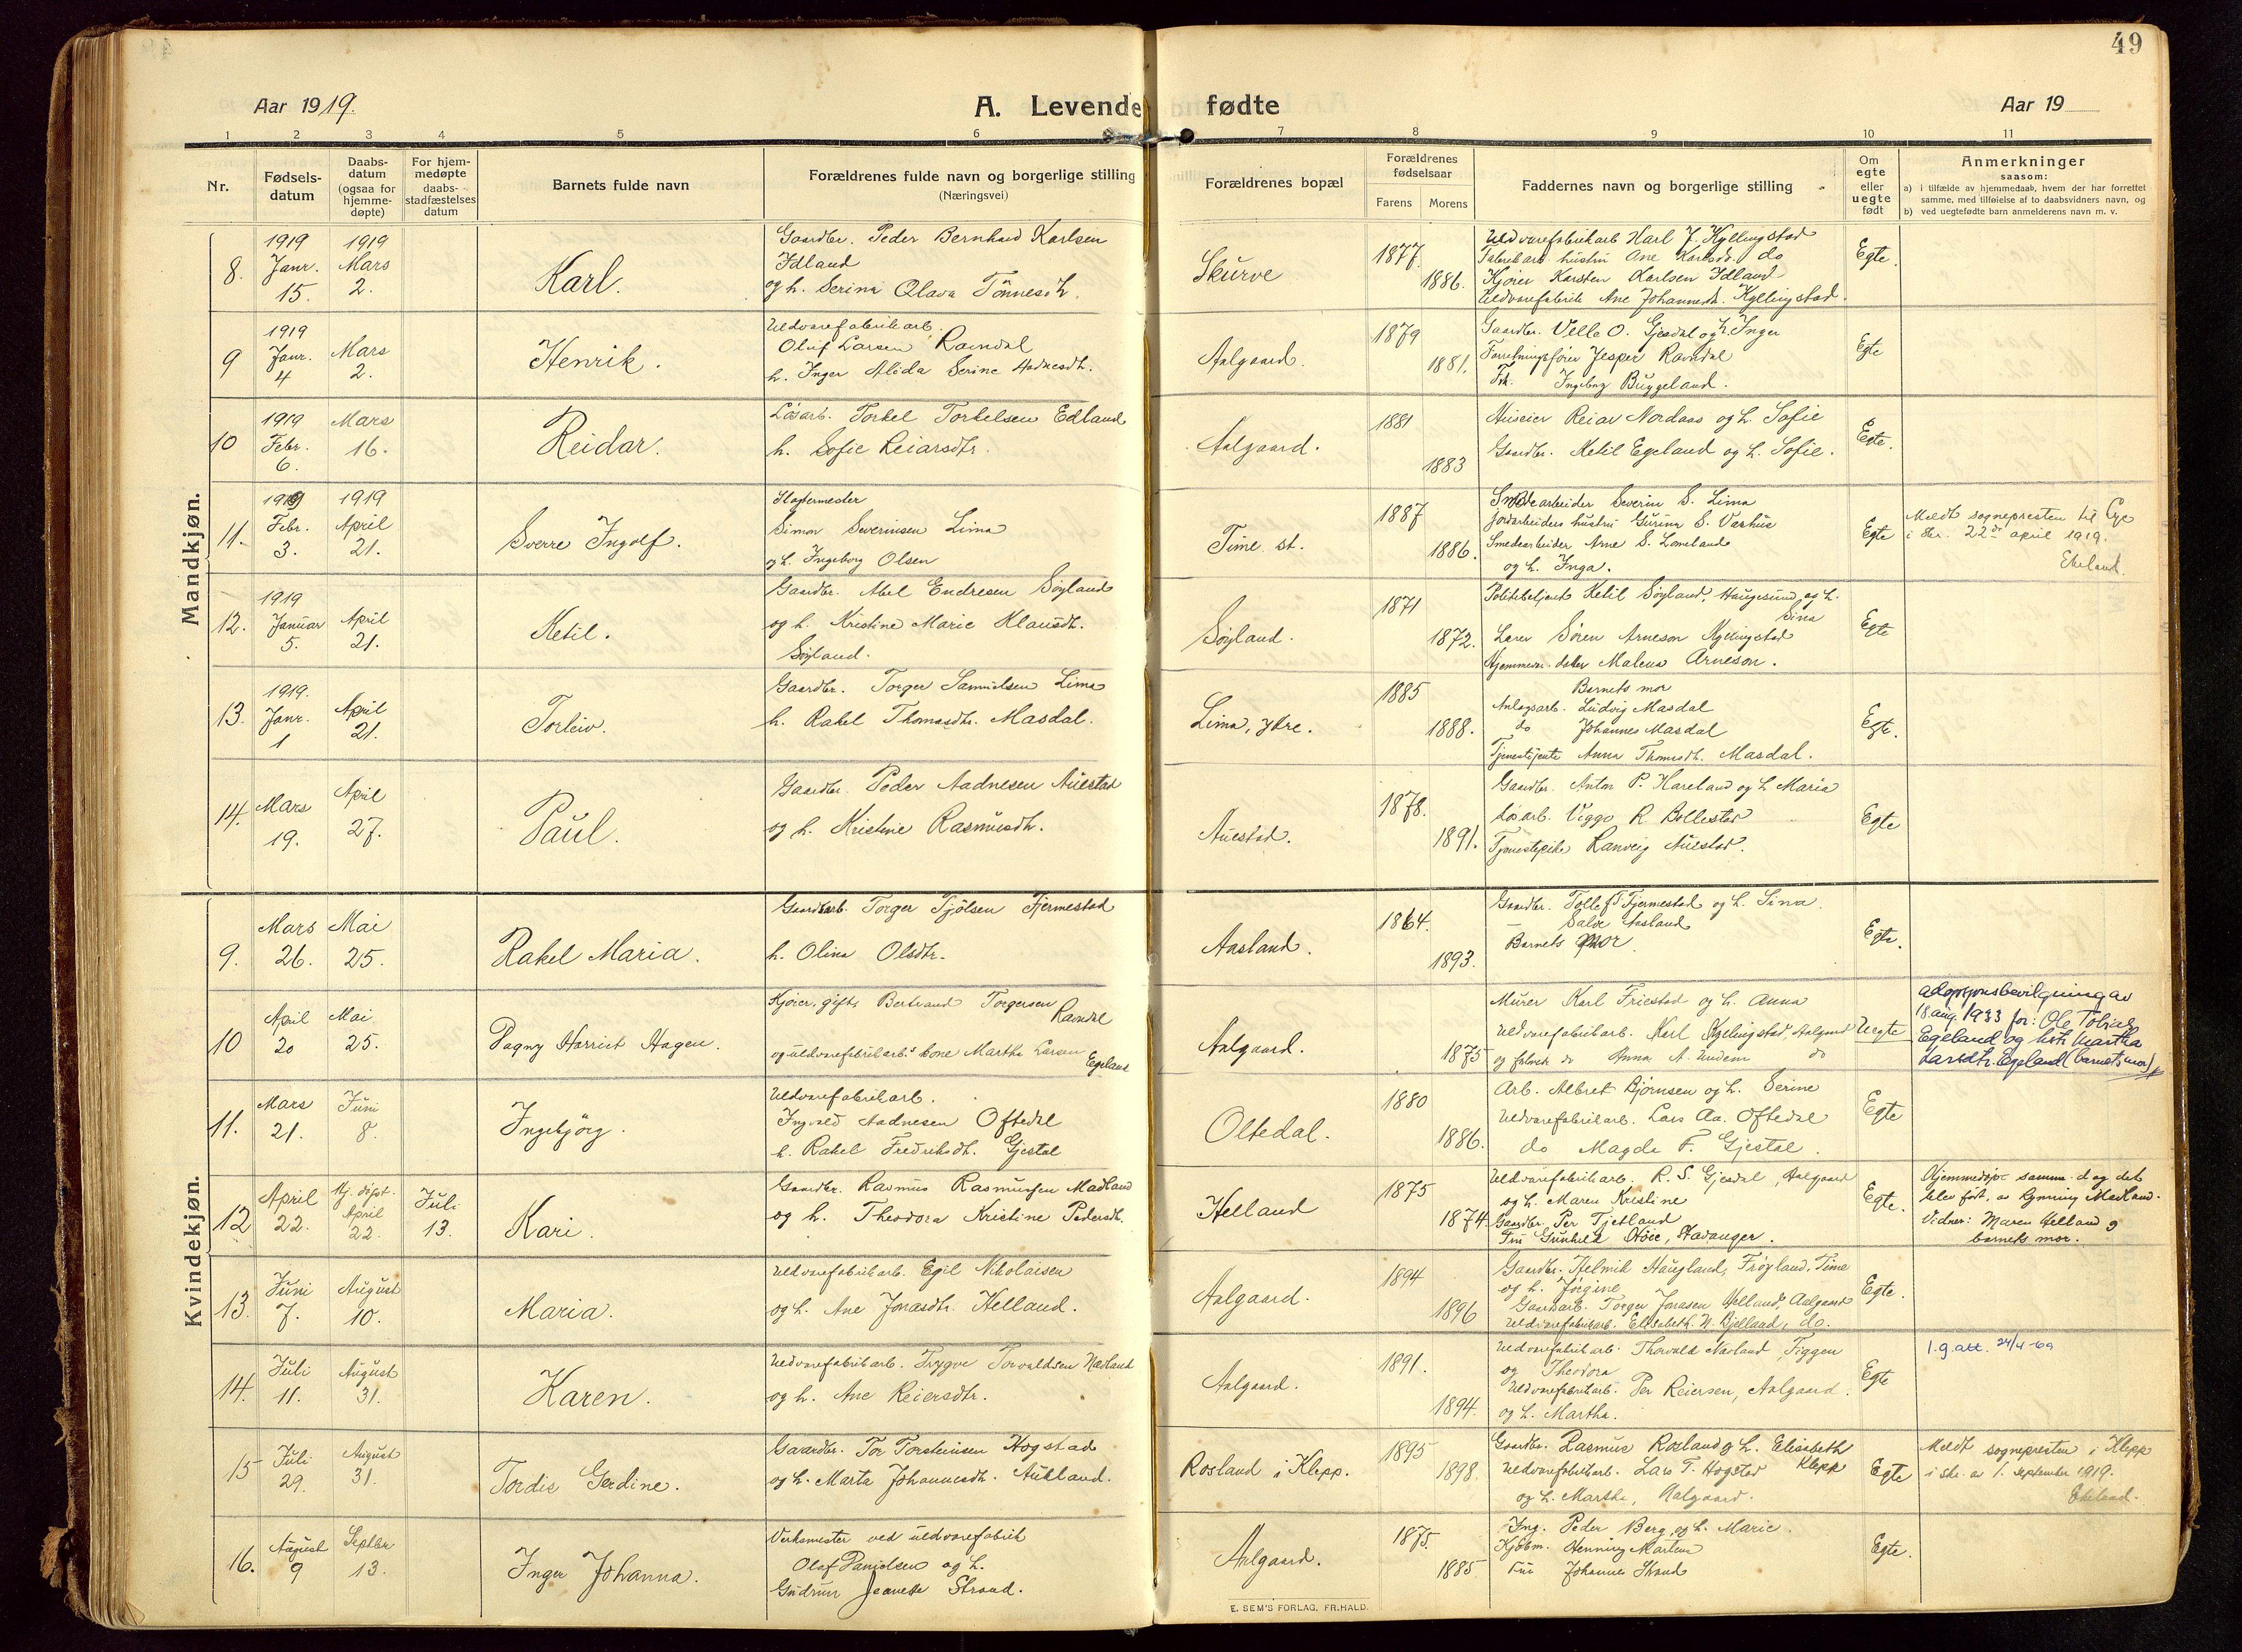 49
Aar 1919.
A. Levende fødte
Aar 19
1 2 3 4 5 6 7 8 9 10 11
Nr.
Fødsels-
datum
Daabs-
datum
(ogsaa for
hjemme-
døpte)
For hjem-
medøpte
daabs-
stadfæstelses
datum
Barnets fulde navn
Forældrenes fulde navn og borgerlige stilling
(Næringsvei)
Forældrenes bopæl
Forældrenes
fødselsaar
Farens Morens
Faddernes navn og borgerlige stilling
Om
egte
eller
uegte
født
Anmerkninger
saasom:
a) i tilfælde av hjemmedaab, hvem der har forrettet
samme, med tilføielse af to daabsvidners navn, og
b) ved uegtefødte barn anmelderens navn m. v.
Mandkjøn.
8.
1919
Janr.
15.
1919
Mars
2.
Karl.
Gaardbr. Peder Bernhard Karlsen
Idland
og h. Serina Olava Tønnesdt.
Skurve
1877.
1886.
Uldvarefabrikarb Karl J. Kyllingstad
Fabrikarb. hustru Ane Karlsdt. do
Kjører Karsten Karlsen Idland
Uldvarefabrik Ane Johannesdt. Kyllingstad.
Egte.
9
1919
Janr.
4
Mars
2.
Henrik.
Uldvarefabrikarb.
Oluf Larsen Ravndal
h. Inger Alida Serine Aadnesdt.
Aalgaard.
1879
1881.
Gaardbr. Velle O. Gjesdal og h. Inger
Forretningsfører Jesper Ravndal
Frk. Ingeborg Buggeland.
Egte
10
1919
Febr.
6.
Mars
16.
Reidar.
Løsarb. Torkel Torkelsen Edland
h. Sofie Reiarsdtr.
Aalgaard.
1881
1883
Huseier Reiar Nordaas og h. Sofie
Gaardbr. Ketil Egeland og h. Sofie.
Egte.
11.
1919
Febr.
3.
1919
April
21.
Sverre Ingolf.
Slagtermester
Simon Severinsen Lima
og h. Ingeborg Olsen
Time st.
1887
1886.
Smedearbeider Severin S. Lima
Jordarbeiders hustru Gurina S. Varhus
Smedearbeider Arne S. Lomeland
og h. Inga.
Egte
Meldt sognepresten til Lye
i skr. 22de april 1919.
Ekeland.
12.
1919
Januar
5.
April
21.
Ketil.
Gaardbr. Abel Endresen Søyland
og h. Kristine Marie Klausdt.
Søyland.
Søyland.
1871
1872.
Politibetjent Ketil Søyland, Haugesund, og h.
Sina
Lærer Søren Arneson Kyllingstad
Hjemmevær. datter Malena Arneson.
Egte
13.
1919.
Janr.
1
April
21.
Torleiv.
Gaardbr. Torger Samuelsen Lima
h. Rakel Thomasdtr. Masdal.
Lima, ytre.
1885
1888.
Barnets mor
Anlægsarb. Ludvig Masdal
do Johannes Masdal
Tjenestejente Anna Thomasdt. Masdal.
Egte.
14.
Mars
19.
April
27.
Paul.
Gaardbr. Peder Aadnesen Auestad
og h. Kristine Rasmusdt.
Auestad.
1878.
1891.
Gaardbr. Anton P. Hareland og h. Maria
Løsarb. Viggo R. Bollestad
Tjenestepike Ranveig Auestad.
Egte
Kvindekjøn.
9.
Mars
26.
Mai
25.
Rakel Maria.
Gaardarb. Torger Tjølsen Fjermestad
h. Olina Olsdtr.
Aasland.
1864.
1893.
Gaardbr. Tollef T Fjermestad og h. Sina.
— Salve Aasland
Barnets mor.
Egte.
10
April
20
Mai
25.
Dagny Harriet Hagen.
Kjører, gift, Bertrand Torgersen
Ravndal
og uldvarefabrikarb.s kone Martha Larsen Egeland
Aalgaard.
1875
Murer Karl Friestad og h. Anna
Uldvarefabrikarb. Karl Kyllingstad, Aalgaard
og fabrik do Anna A. Undem do
Uegte
adopsjonsbevilgning av
18 aug. 1933 for: Ole Tobias
Egeland og hstr Martha
Larsdtr. Egeland (barnets mor)
11.
Mars
21.
Juni
8.
Ingebjörg.
Uldvarefabrikarb.
Ingvald Aadnesen Oftedal
h. Rakel Fredriksdt. Gjestal
Oltedal.
1880
1886.
Arb. Albret Bjørnsen og h. Serine
Uldvarefabrikarb. Lars Aa. Oftedal
do Magda F. Gjestal.
Egte
12
April
22.
Hj. døpt.
April
22.
Juli
13.
Kari.
Gaardbr. Rasmus Rasmussen Madland
og h. Theodora Kristine Pedersdt.
Helland
1875
1874.
Uldvarefabrikarb. R. S. Gjesdal, Aalgaard
og h. Maren Kristine
Gaardbr. Per Tjetland
Fru Gunhild Høie, Stavanger.
Egte.
Hjemmedøpt samme dag det
blev født, av Rynning Madland.
Vidner: Maren Helland og
barnets mor.
13.
Juni
7.
August
10.
Maria.
Uldvarefabrikarb. Egil Nikolaisen
og h. Ane Jonasdtr. Helland.
Aalgaard.
1894
1896
Gaardbr. Hjelmik Haugland, Frøyland, Time
og h. Jørgine
Gaardarb. Torger Jonasen Helland, Aalgaard
Uldvarefabrikarb. Elisabeth N. Bjelland, do.
Egte.
14.
Juli
11.
August
31.
Karen.
Uldvarefabrikarb. Trygve Torvaldsen Nævland
og h. Ane Reiersdtr.
Aalgaard.
1891.
1894.
Uldvarefabrikarb. Thorvald Nævland, Figgen
og Theodora
Uldvarefabrikarb. Per Reiersen, Aalgaard.
og h. Martha.
Egte
1.g.att. 24/4-69
15
Juli
29.
August
31.
Tordis Gerdine.
Gaardbr. Tor Torsteinsen Hogstad
og h. Marta Johannesdt. Aukland.
Rosland i Klepp.
1895
1898.
Gaardbr. Rasmus Rosland og h. Elisabeth
Klepp
Uldvarefabrikarb. Lars T. Hogstad
og h. Martha, Aalgaard.
Egte
Meldt sognepresten i Klepp
i skr. av 1. september 1919.
Ekeland.
16.
August
9
Septbr
13.
Inger Johanna.
Verkmester ved uldvarefabrik
Olaf Danielsen og h.
Gudrun Jeanette Strand.
Aalgaard.
1875.
1885.
Ing. Peder Berg og h. Marie.
Kjøbm. Henning Martens
Fru Johanne Strand
Egte.
E. SEM'S FORLAG, FR.HALD.